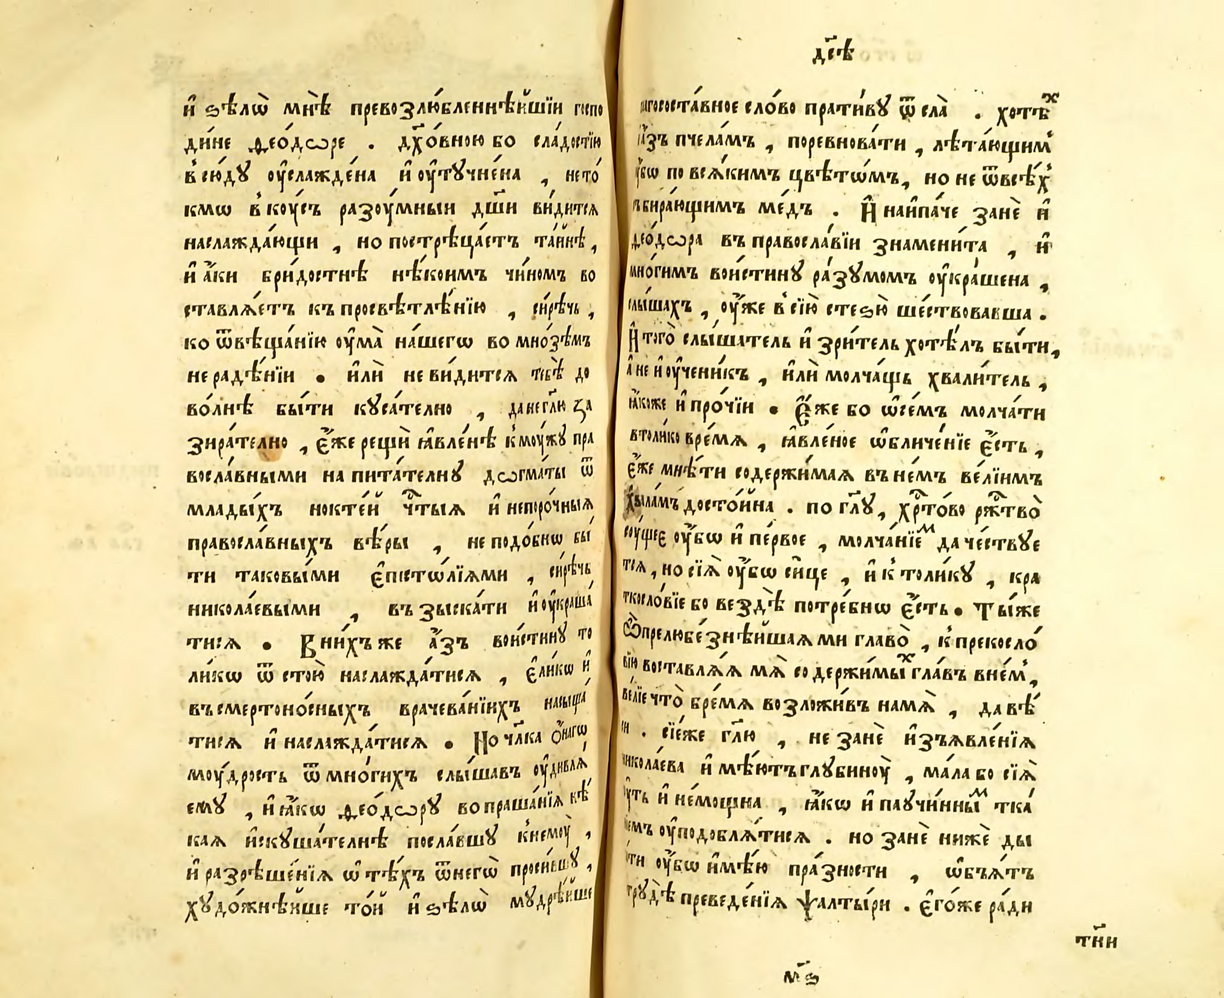 и҆ ѕѣлѡ̀ мнѣ̀ превозлю́бленнѣйшїи госпо
ди́не ѳео́дѡре . дх҃о́вною бо сла́достїю
всю́дꙋ оу҆слажде́на и҆ оу҆тꙋчне́на , не то́
кмѡ вкоу́съ разоу́мныи дш҃и ви́дится
наслажда́ющи , но пострѣца́етъ та́йнѣ ,
и҆ а҆́ки бри́достнѣ нѣ́коимъ чи́номъ во
ставлѧ́етъ къ просвѣтле́нїю , си́рѣчь ,
ко ѿвѣща́нїю оу҆ма̀ на́шегѡ во мно́зѣмъ
не радѣ́нїи . и҆лѝ не ви́дится тебѣ̀ до
во́лнѣ бы́ти кꙋса́телно , да не гл҃ю за
зира́телно , є҆́же рещѝ ꙗ҆вле́нѣ к моу́жꙋ пра
восла́вными на пита́телнꙋ дѡгма́ты ѿ
млады́хъ ноктей чт҃ыѧ и҆ непоро́чныѧ
правосла́вныхъ вѣ́ры , не подо́бнѡ бы́
ти таковы́ми є҆пїстѡлі́ѧми , си́рѣчь
никола́евыми , въ зыска́ти и҆ оу҆краша́
тисѧ . В ни́хъже а҆́зъ вои́стинꙋ то
ли́кѡ ѿ стою̀ наслажда́тисѧ , є҆ли́кѡ и҆
въ смертоно́сныхъ врачева́нїихъ насыща́
тисѧ и҆ наслажда́тисѧ . Но чл҃ка ѻ҆́нагѡ
моу́дрость ѿ мно́гихъ слы́шавъ оу҆дивлѧ́
емꙋ , и҆ ꙗ҆́кѡ ѳео́дѡрꙋ вопраша́нїѧ нѣ́
каѧ и҆скꙋша́телнѣ посла́вшꙋ к немоу̀ ,
и҆ разрѣше́нїѧ ѡ҆ тѣ́хъ ѿ негѡ̀ проси́вшꙋ ,
хꙋдо́жнѣйше то́й и҆ ѕѣлѡ̀ мꙋдрѣ́йше
дс҃е҃
благососта́вное сло́во прати́вꙋ ѿсла̀ . хотѣ́х
а҆́зъ пчела́мъ , поревнова́ти , лѣта́ющим
оу҆́бѡ по всѧ́кимъ цвѣтѡ́мъ , но не ѿ всѣ́х
събира́ющимъ ме́дъ . И҆ наипа́че занѐ и҆
ѳео́дѡра въ правосла́вїи знамени́та , и҆
мно́гимъ вои́стинꙋ ра́зꙋмомъ оу҆кра́шена ,
слы́шахъ , оу҆́же в сїю̀ стезю̀ ше́ствовавша .
И҆ того̀ слы́шатель и҆ зри́тель хотѣ́лъ бы́ти ,
а҆ не и҆ оу҆чени́къ , и҆лѝ молча́щь хвали́тель ,
ꙗ҆́коже и҆ про́чїи . Є҆́же бо ѡ҆ се́мъ молча́ти
в толи́ко вре́мѧ , ꙗ҆вле́ное ѡ҆бличе́нїе є҆́сть ,
є҆́же мнѣ́ти содержи́маѧ въ не́мъ ве́лїимъ
хꙋла́мъ досто́йна . по гл҃ꙋ , хрⷭ҇то́во ржⷭ҇тво̀
соу́щее оу҆́бѡ и҆ пе́рвое , молча́нїем да че́ствꙋе
тсѧ , но сїѧ̀ оу҆́бѡ си́це , и҆ к толи́кꙋ , кра
ткосло́вїе бо вездѣ̀ потре́бнѡ є҆́сть . Ты́же
ѽ прелюбе́знѣйшаѧ ми главо̀ , к прекосло́
вїю воставлѧ́ѧ мѧ̀ содержи́мых гла́въ в не́м ,
ве́лїе что̀ бре́мѧ возложи́въ на мѧ̀ , да вѣ́
си . сїе́же гл҃ю , не занѐ и҆зъѧвле́нїѧ
никола́ева и҆мѣ́ютъ глꙋбиноу̀ , ма́ла бо сїѧ̀
сꙋ́ть и҆ немощна , ꙗ҆́кѡ и҆ паꙋчи́нным тка́
нїемъ оу҆подоблѧ́тисѧ . но занѐ нижѐ ды
ха́ти оу҆́бѡ и҆мѣ́ю пра́зности , ѡ҆б̾ѧ́тъ
трꙋдѣ̀ преведе́нїѧ ѱалты́ри . є҆гѡ́же ра́ди
тни
м҃ѕ